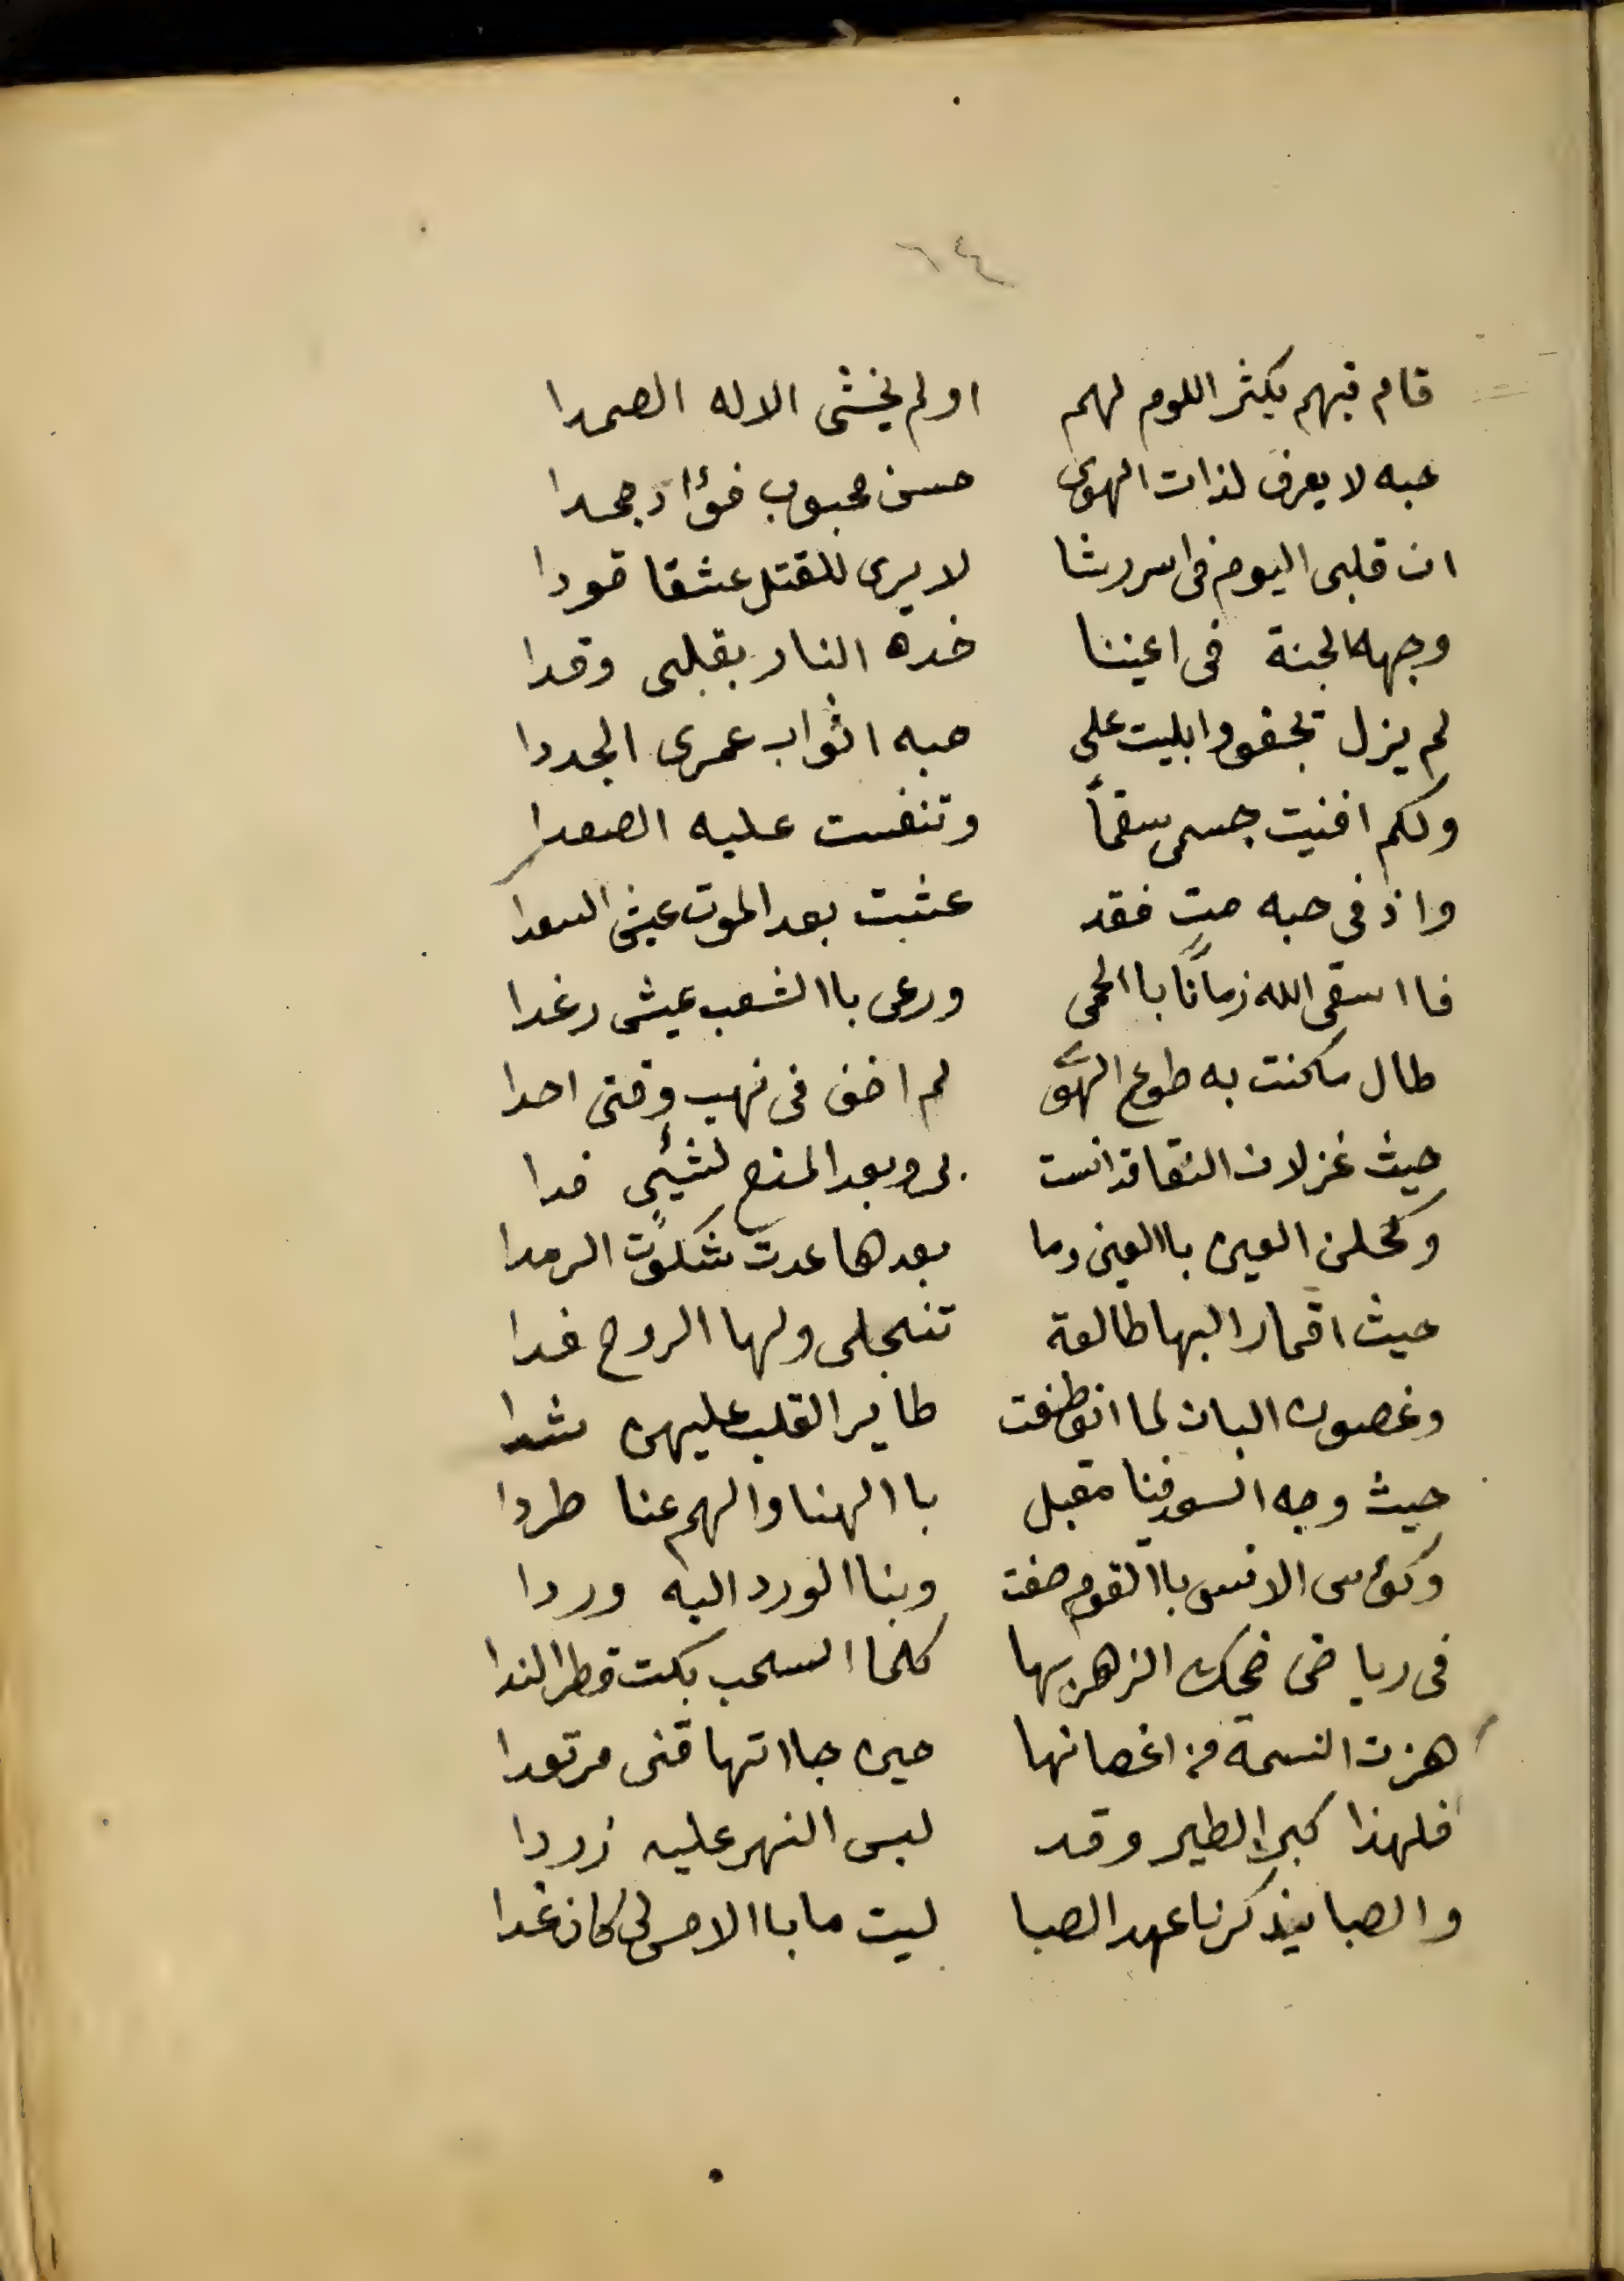 ٦٤
قام فيهم يكثر اللوم لهم اولم يخشى الاله الصمدا
حبه لا يعرف لذات الهوى حسن محبوب فؤاد جحدا
ان قلبى اليوم فى اسر رشا لا يرى للقتل عشقا قودا
وجهه كالجنة فى اعيننا خده النار بقلبى وقدا
لم يزل وابليت على حبه اثواب عمرى الجددا
ولكم افنيت جسمى سقماً وتنفست عليه الصعدا
واذ فى حبه مت فقد عشت بعد الموت عيش السعدا
فا اسقى الله زمانًا با الحمى ورعى با الشعب عيشى رغدا
طال سكنت به طوع الهوى لم اخف فى نهب وقتى احدا
حيث غزلان النقا قد انست بى وبعد المنح لشيئى فدا
وكحلن العين با العين وما بعدها عدت شكوت الرمدا
حيث اقمار البها طالعة تنجلى ولها الروح فدا
وغصون البان لما انعطفت طاير القلب عليهن شدا
حيث وجه السعد فينا مقبل با الهنا والهم عنا طردا
وكؤس الانس با القوم صفت وبنا الورد اليه وردا
فى رياض ضحك الزهر بها كلما السحب بكت قطر الندا
هزت النسمة من اغصانها حين جا اتها فنى مرتعدا
فلهذا كبر الطير وقد لبس النهر عليه زردا
والصبا يذكرنا عهد الصبا ليت ما با الامس لى كان غدا